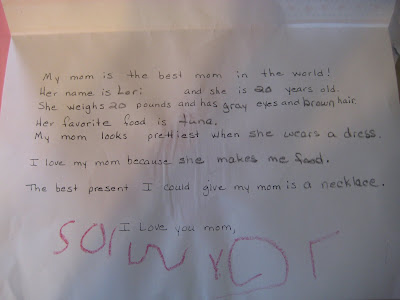 My mom is the best mom in the world!
Her name is Lori and she is 20 years old.
She weighs 20 pounds and has gray eyes and brown hair.
Her favorite food is tuna.
My mom looks prettiest when she wears a dress.
I love my mom because she makes me food.
The best present I could give my mom is a necklace.
I Love you mom,